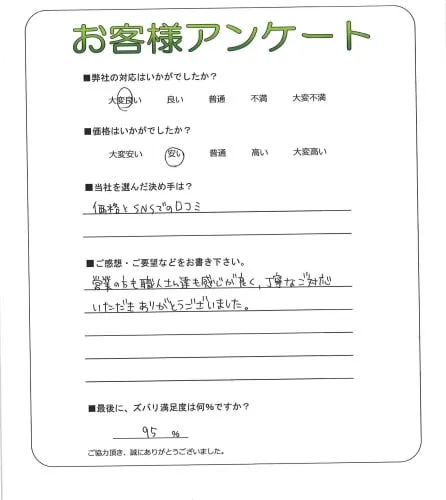 お客様アンケート
■弊社の対応はいかがでしたか?
大変良い 良い 普通 不満 大変不満
■価格はいかがでしたか?
大変安い 安い 普通 高い 大変高い
■当社を選んだ決め手は?
価格とSNSでの口コミ
■ご感想・ご要望などをお書き下さい。
営業の方も職人さん達も感じが良く、丁寧なご対応
いただきありがとうございました。
■最後に、ズバリ満足度は何%ですか?
95 %
ご協力頂き、誠にありがとうございました。